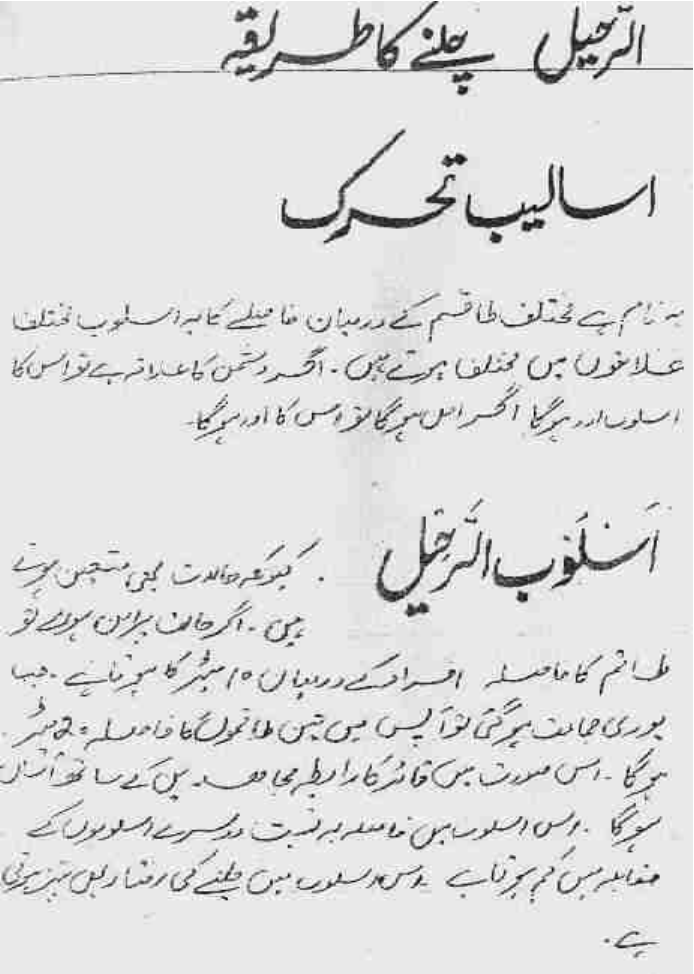 الرّحیل چلنے کا طریقہ
اسالیب تحرک
یہ نام ہے مختلف طاقم کے درمیان فاصلے کا یہ اسلوب مختلف
علاقوں میں مختلف ہوتے ہیں۔ اگر دشمن کا علاقہ ہے تو اس کا
اسلوب اور ہوگا اگر امن ہوگا تو اس کا اور ہوگا۔
اَسْلُوب الرَّحِیْل
کیونکہ حالات بھی متعین ہوتے
ہیں۔ اگر حالت پرامن ہوئے تو
طاقم کا فاصلہ افراد کے درمیان ۱۰ میٹر کا ہوتا ہے۔ جب
پوری جماعت ہوگئی تو آپس میں تین طاقموں کا فاصلہ میٹر
ہوگا۔ اس صورت میں قائد کا رابطہ کے ساتھ آسان
ہوگا۔ اس اسلوب میں فاصلہ بہ نسبت دوسرے اسلوبوں کے
مقابلہ میں کم ہوتا ہے۔ اس اسلوب میں چلنے کی رفتار تیز ہوتی
ہے۔